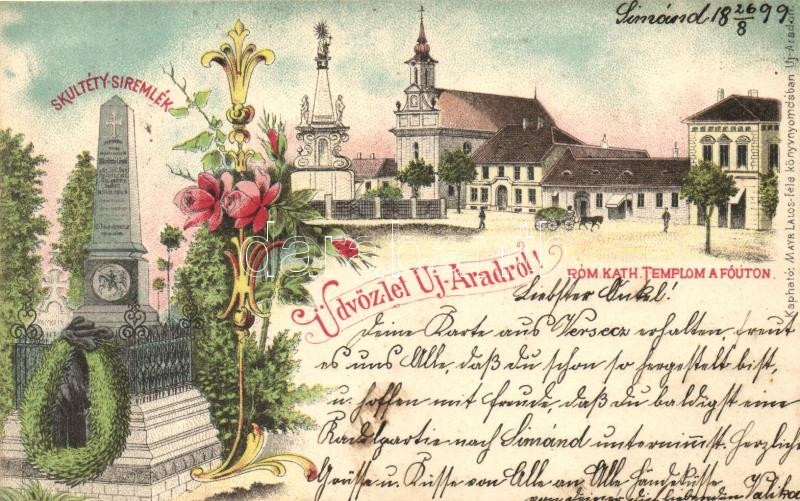 Simánd 18 26/8 99.
SKULTÉTY-SIREMLÉK
Üdvözlet Uj-Aradról!
RÓM. KATH. TEMPLOM A FŐUTON.
Kapható: MAYR LAJOS-féle könyvnyomdában Uj-Aradon.
darabanth
Liebster Onkel!
Deine Karte aus Versecz erhalten, freut
es uns Alle, daß du schon so hergestellt bist,
u. hoffen mit Freude, daß du baldigst eine
Radlpartie nach Simánd unternimmst. Herzliche
Grüsse u. Küsse von Alle an Alle Handküsse
von deiner dich liebenden